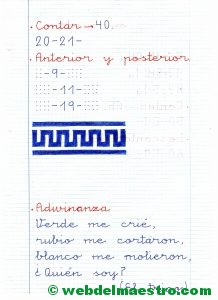 . Contar → 40.
20-21-
. Anterior y posterior
-9-
-11-
-19-
. Adivinanza
Verde me crié,
rubio me cortaron,
blanco me molieron,
¿Quién soy?
(El trigo)
© webdelmaestro.com